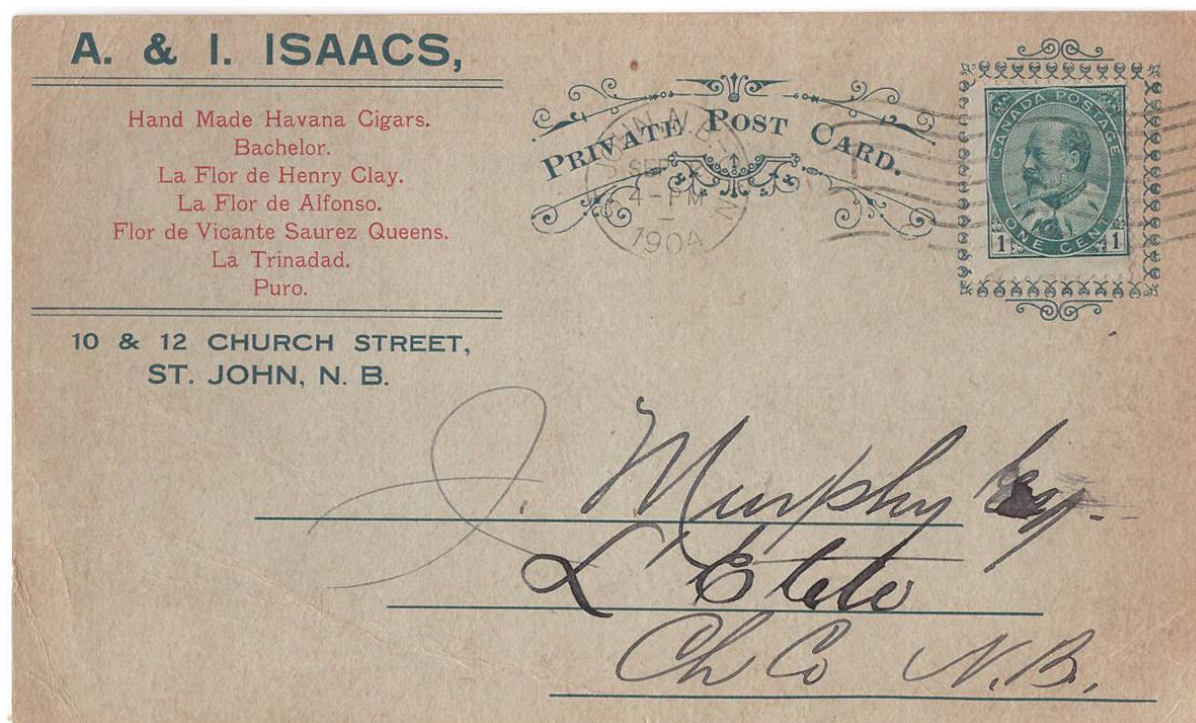 A. & I. ISAACS,
Hand Made Havana Cigars.
Bachelor.
La Flor de Henry Clay.
La Flor de Alfonso.
Flor de Vicante Saurez Queens.
La Trinadad.
Puro.
10 & 12 CHURCH STREET,
ST. JOHN, N. B.
PRIVATE POST CARD.
JOHN, N.B.
SEP
4-PM
1904
CANADA POSTAGE
ONE CENT
1 1
J. Murphy Esq.
L'Etete
Ch Co N.B.